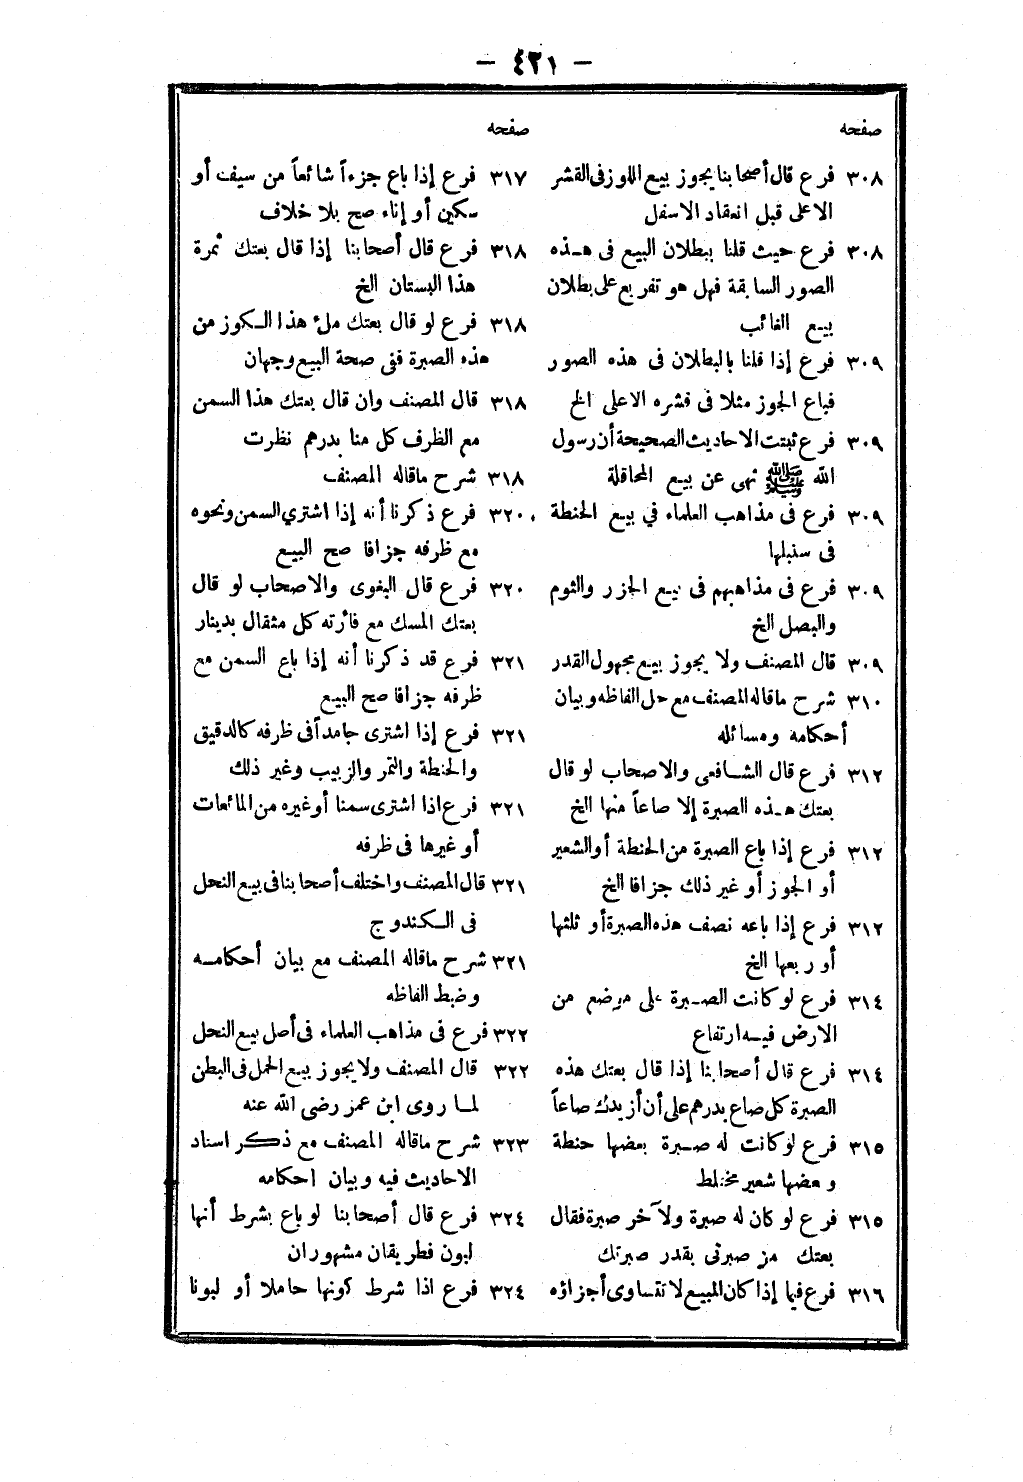 — ٤٢١ —
صفحه
٣٠٨ فرع قال أصحابنا يجوز بيع اللوز فى القشر
الاعلى قبل انعقاد الاسفل
٣٠٨ فرع حيث قلنا ببطلان البيع فى هـذه
الصور السابقة فهل هو تفريع على بطلان
بيع الغائب
٣٠٩ فرع إذا قلنا بالبطلان فى هذه الصور
فباع الجوز مثلا فى قشره الاعلى الخ
٣٠٩ فرع ثبتت الاحاديث الصحيحة أن رسول
الله ﷺ نهى عن بيع المحاقلة
٣٠٩ فرع فى مذاهب العلماء في بيع الحنطة
فى سنبلها
٣٠٩ فرع فى مذاهبهم فى بيع الجزر والثوم
والبصل الخ
٣٠٩ قال المصنف ولا يجوز بيع مجهول القدر
٣١٠ شرح ماقاله المصنف مع حل الفاظه وبيان
أحكامه ومسائله
٣١٢ فرع قال الشـافعى والاصحاب لو قال
بعتك هـذه الصبرة إلا صاعاً منها الخ
٣١٢ فرع إذا باع الصبرة من الحنطة أو الشعير
أو الجوز أو غير ذلك جزافا الخ
٣١٢ فرع إذا باعه نصف هذه الصبرة أو ثلثها
أو ربعها الخ
٣١٤ فرع لو كانت الصـبرة على موضع من
الارض فيـه ارتفاع
٣١٤ فرع قال أصحابنا إذا قال بعتك هذه
الصبرة كل صاع بدرهم على أن أزيدك صاعاً
٣١٥ فرع لو كانت له صـبرة بعضها حنطة
وبعضها شعير مختلط
٣١٥ فرع لو كان له صبرة ولآخر صبرة فقال
بعتك من صبرتى بقدر صبرتك
٣١٦ فرع فيما إذا كان المبيع لا تتساوى أجزاؤه
صفحه
٣١٧ فرع إذا باع جزءاً شائعاً من سيف أو
سكين أو إناء صح بلا خلاف
٣١٨ فرع قال أصحابنا إذا قال بعتك ثمرة
هذا البستان الخ
٣١٨ فرع لو قال بعتك ملء هذا الـكوز من
هذه الصبرة ففى صحة البيع وجهان
٣١٨ قال المصنف وان قال بعتك هذا السمن
مع الظرف كل منا بدرهم نظرت
٣١٨ شرح ماقاله المصنف
٣٢٠ فرع ذكرنا أنه إذا اشتري السمن ونحوه
مع ظرفه جزافا صح البيع
٣٢٠ فرع قال البغوى والاصحاب لو قال
بعتك المسك مع فارته كل مثقال بدينار
٣٢١ فرع قد ذكرنا أنه إذا باع السمن مع
ظرفه جزافا صح البيع
٣٢١ فرع إذا اشترى جامداً فى ظرفه كالدقيق
والحنطة والتمر والزبيب وغير ذلك
٣٢١ فرع اذا اشترى سمنا أو غيره من المائعات
أو غيرها فى ظرفه
٣٢١ قال المصنف واختلف أصحابنا فى بيع النحل
فى الـكندوج
٣٢١ شرح ماقاله المصنف مع بيان أحكامـه
وضبط الفاظه
٣٢٢ فرع فى مذاهب العلماء فى أصل بيع النحل
٣٢٢ قال المصنف ولا يجوز بيع الحمل فى البطن
لمـا روى ابن عمر رضى الله عنه
٣٢٣ شرح ماقاله المصنف مع ذكر اسناد
الاحاديث فيه وبيان احكامه
٣٢٤ فرع قال أصحابنا لو باع بشرط أنها
لبون فطريقان مشهوران
٣٢٤ فرع اذا شرط كونها حاملا أو لبونا